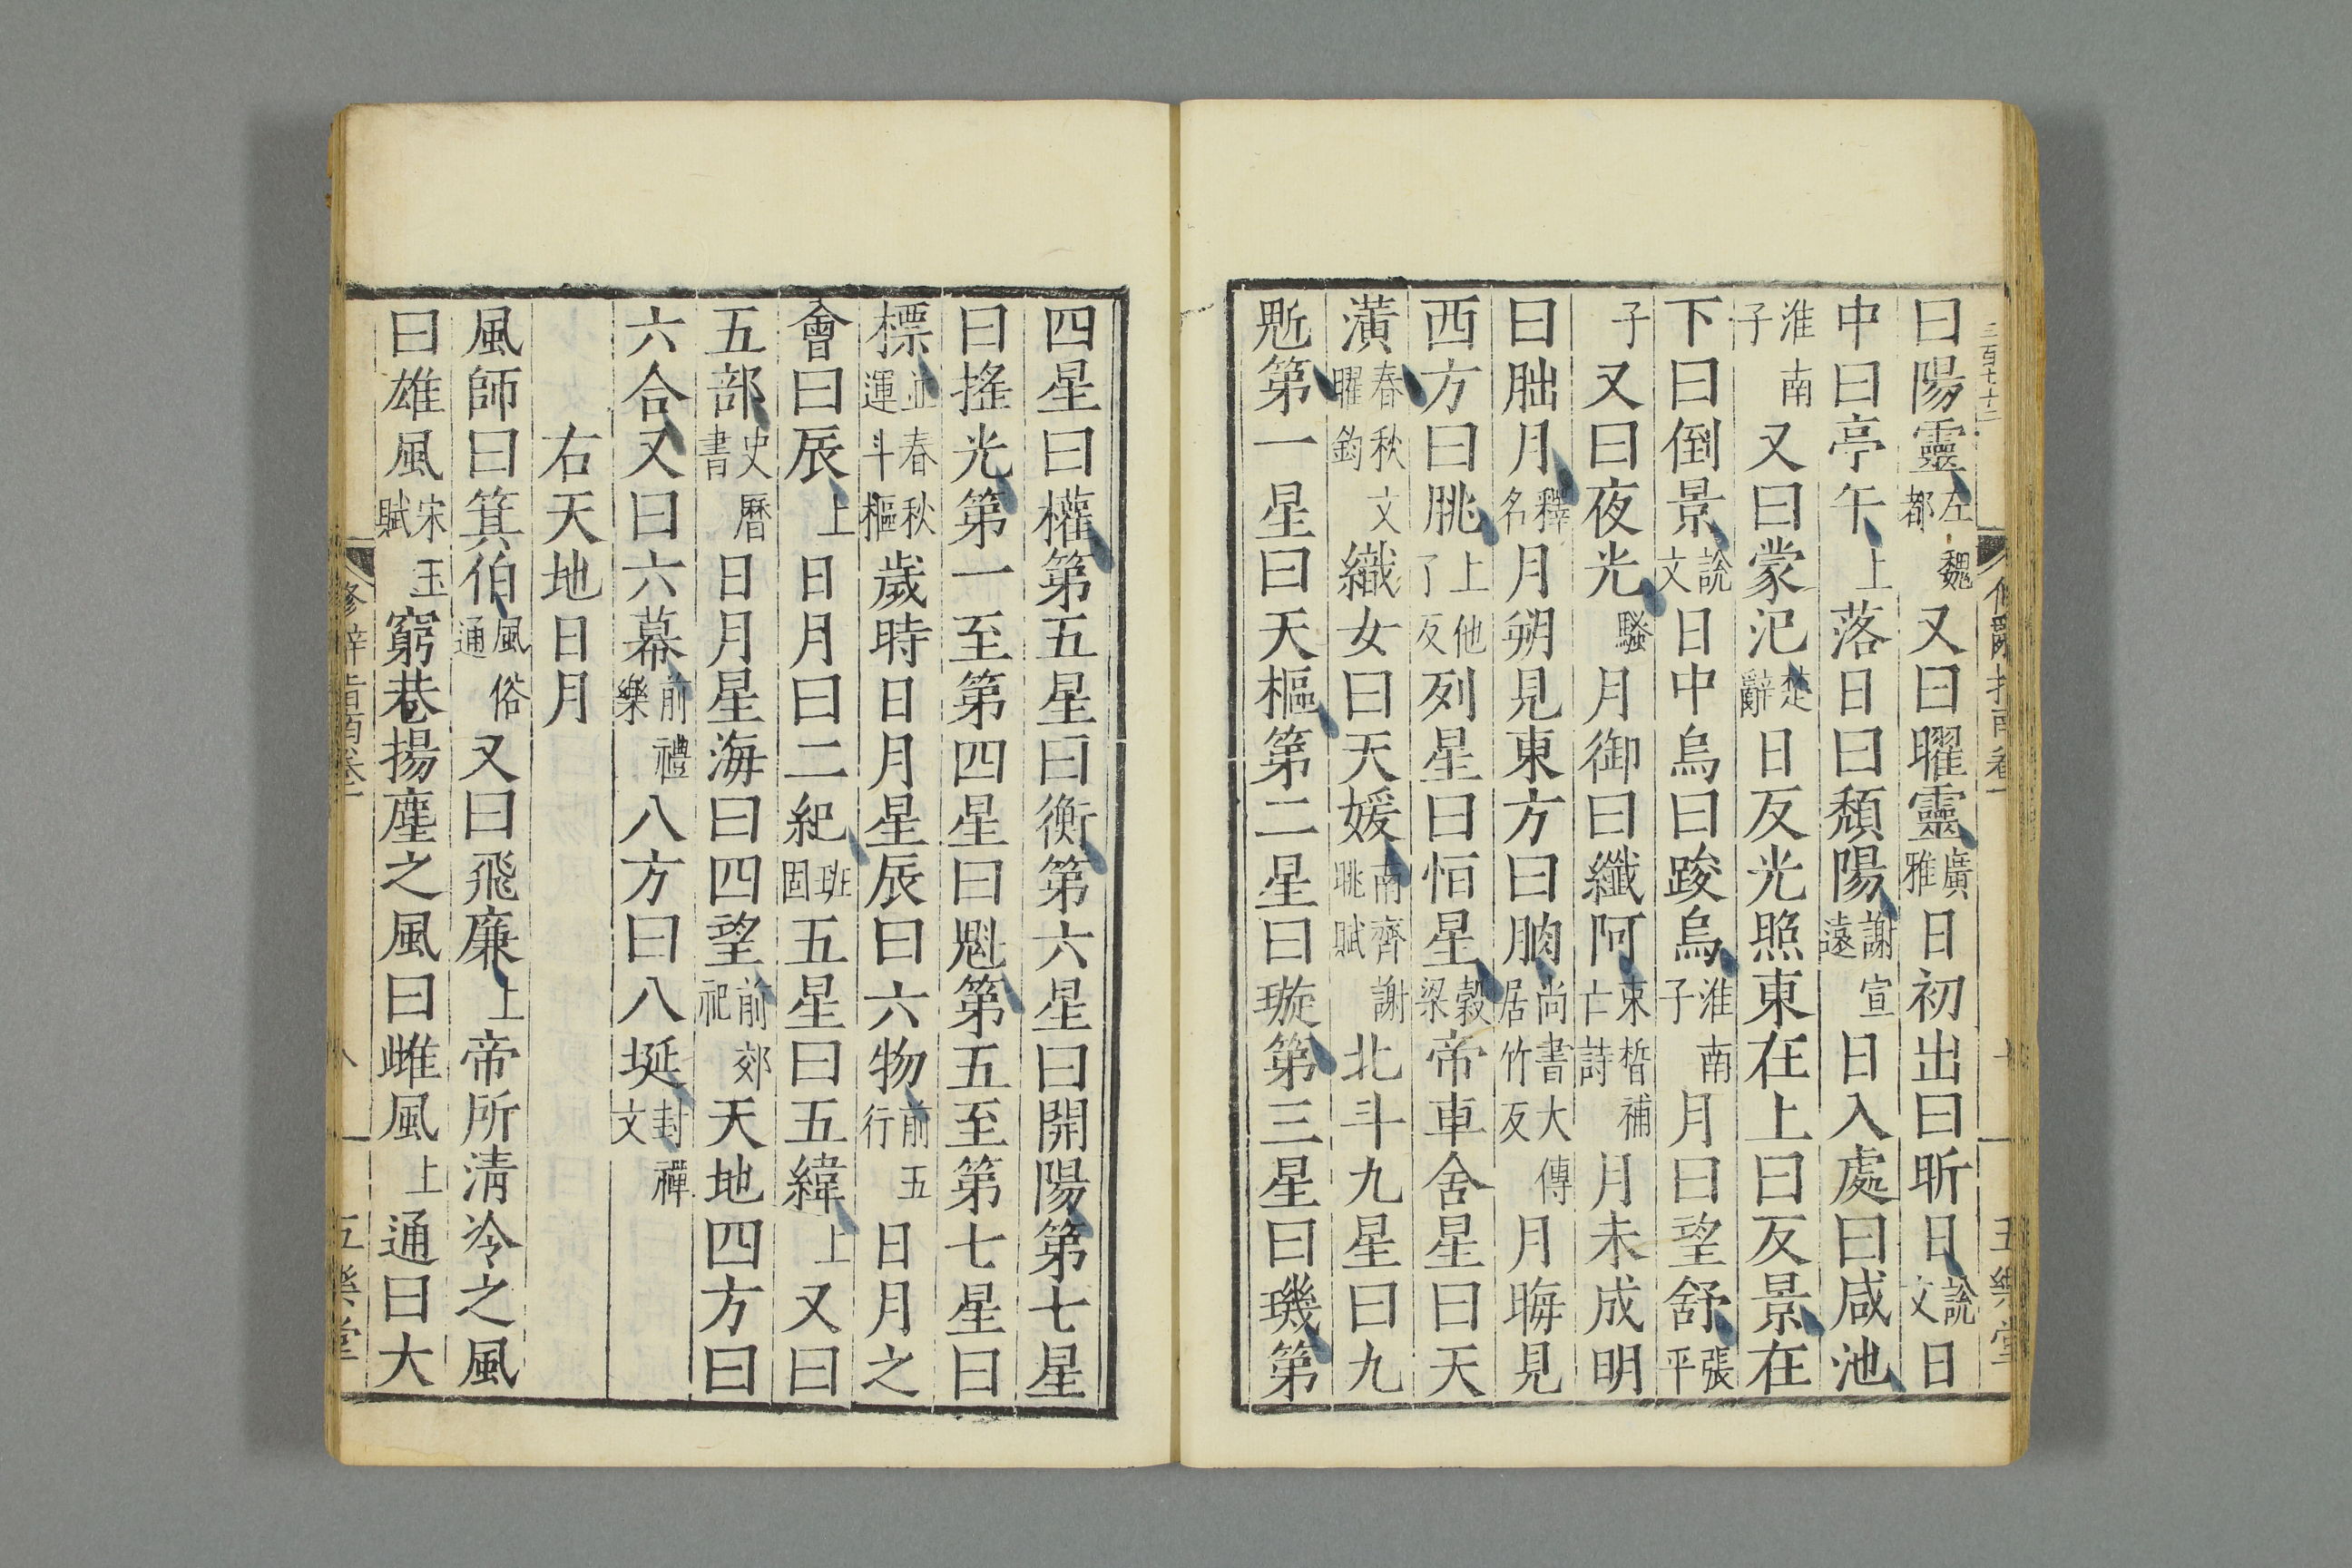 曰陽靈左魏都又曰曜靈廣雅日初出曰昕日說文日
中曰亭午上落日曰頹陽謝宣遠日入處曰咸池
淮南子又曰蒙汜楚辭日反光照東在上曰反景在
下曰倒景說文日中烏曰踆烏淮南子月曰望舒張平
子又曰夜光騷月御曰纖阿束晳補亡詩月未成明
曰朏月釋名月朔見東方曰朒尚書大傳居竹反月晦見
西方曰朓上他了反列星曰恒星穀梁帝車舍星曰天
潢春秋文曜鈞織女曰天媛南齊謝朓賦北斗九星曰九
鬿第一星曰天樞第二星曰璇第三星曰璣第
四星曰權第五星曰衡第六星曰開陽第七星
曰搖光第一至第四星曰魁第五至第七星曰
標並春秋運斗樞歲時日月星辰曰六物前五行日月之
會曰辰上日月曰二紀班固五星曰五緯上又曰
五部史曆書日月星海曰四望前郊祀天地四方曰
六合又曰六幕前禮樂八方曰八埏封禪文
右天地日月
風師曰箕伯風俗通又曰飛廉上帝所清泠之風
曰雄風宋玉賦窮巷揚塵之風曰雌風上通曰大
修辭指南卷一
八
五樂堂